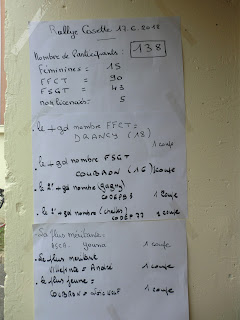 Rallye Cosette 17.6.2012
Nombre de Participants : 138
Féminines = 15
FFCT = 90
FSGT = 43
non licenciés = 5
. le + gd nombre FFCT =
DRANCY (18)
1 coupe
. le + gd nombre FSGT
COUBRON (16) 1 coupe
. le 2e + gd nombre (gagny)
1 coupe
. le 2e + gd nombre (chelles)
1 coupe
La plus méritante =
1 coupe
. Le plus méritant
= André 1 coupe
. Le plus jeune =
COUBRON 1 coupe